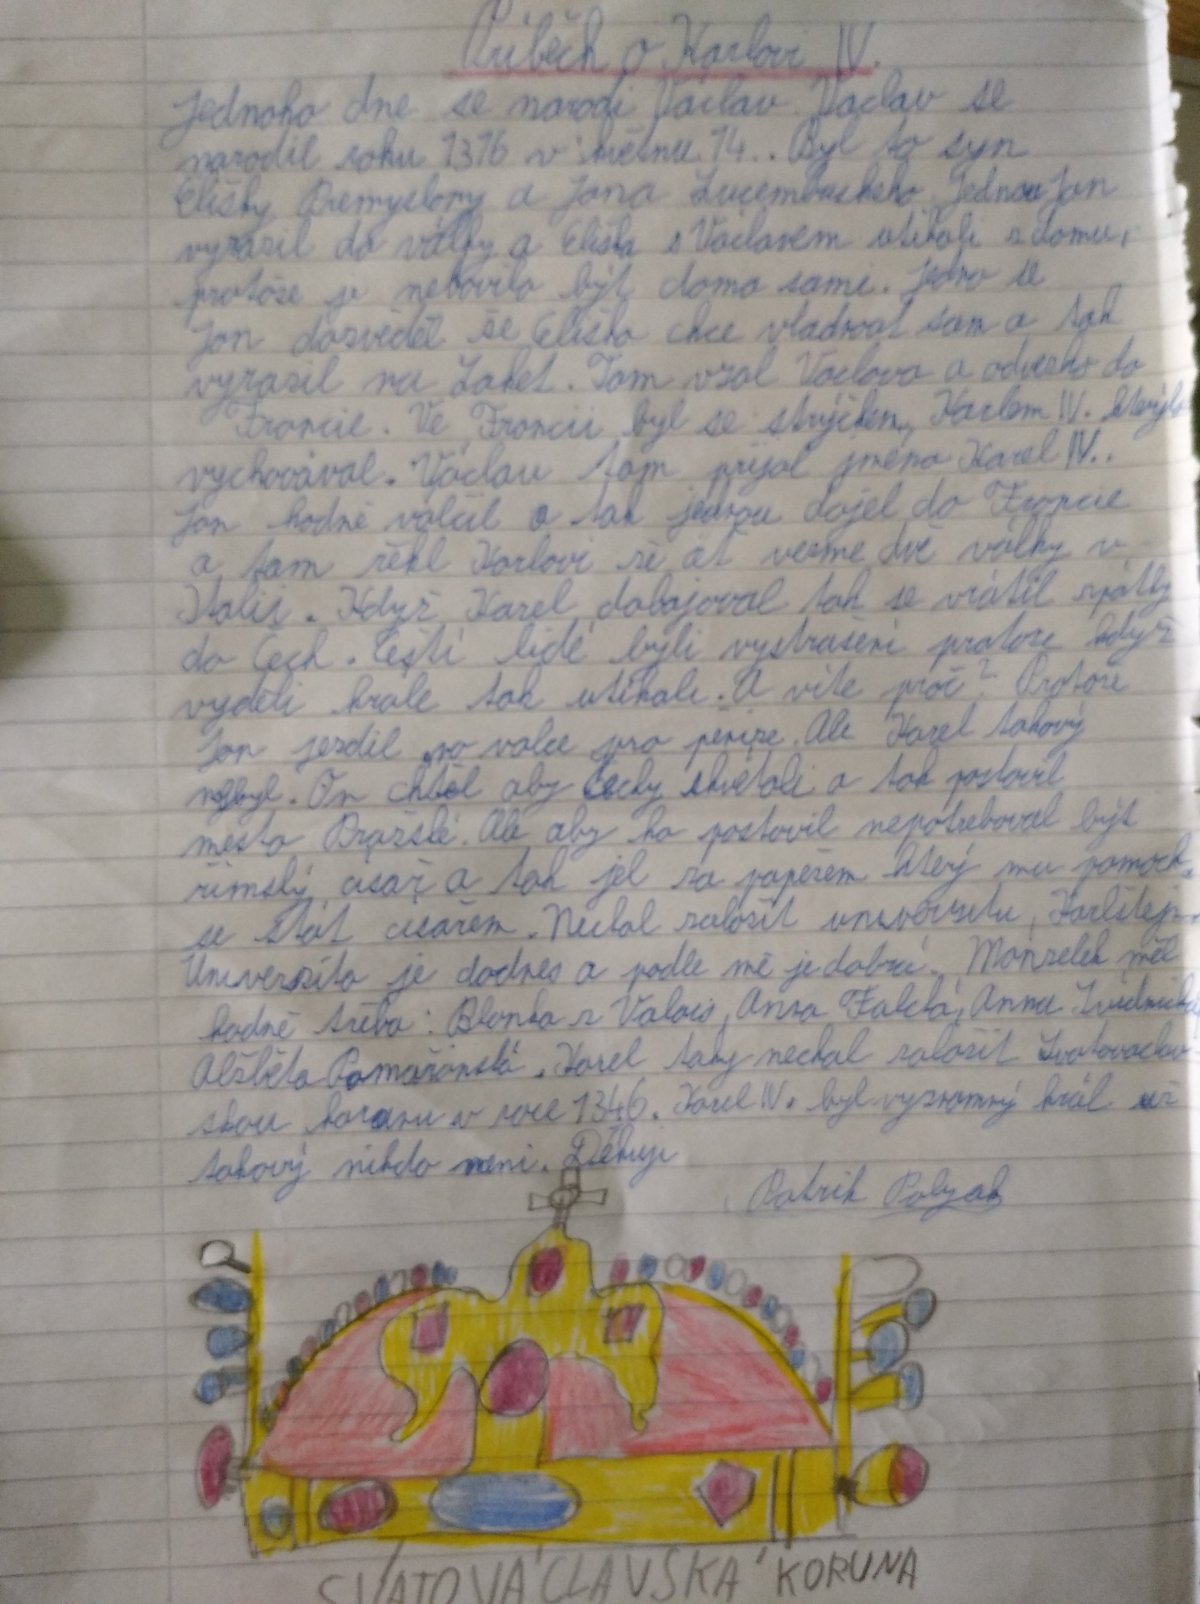 Příběh o Karlovi IV.
Jednoho dne se narodi Václav. Václav se
narodil roku 1316 v květnu 14.. Byl to syn
Elišky Přemyslovny a Jana Lucemburského. Jednou Jan
vyrazil do války a Eliška s Václavem utíkali z domu,
protože je nebavilo být doma sami. Jenže se
Jan dozvěděl že Eliška chce vladnout sama a tak
vyrazil na Loket. Tam vzal Václava a odvezl ho do
Francie. Ve Francii byl se strýčkem Karlem IV. který ho
vychovával. Václav tam přijal jméno Karel IV..
Jan hodně válčil a tak jednou dojel do Francie
a tam řekl Karlovi že ať vezme dvě války v
Italii. Když Karel dobojoval tak se vrátil zpátky
do Čech. Čeští lidé byli vystrašení protože když
vyděli krále tak utíkali. A víte proč? Protože
Jan jezdil na válce pro peníze. Ale Karel takový
nebyl. On chtěl aby Čechy zkvétali a tak postavil
město Pražské. Ale aby ho postavil nepotřeboval být
římský císař a tak jel za papežem který mu pomoch
se stát císařem. Nechal založit univerzitu, Karlštejn
Univerzita je dodnes a podle mě je dobrá. Manželek měl
hodně třeba: Blanka z Valois, Anna Falcká, Anna Svídnická
Alžběta Pomořanská. Karel taky nechal založit Svatováclav
skou korunu v roce 1346. Karel IV. byl významný král už
takový nikdo neni. Děkuji
Patrik Polyak
SVATOVÁCLAVSKÁ KORUNA